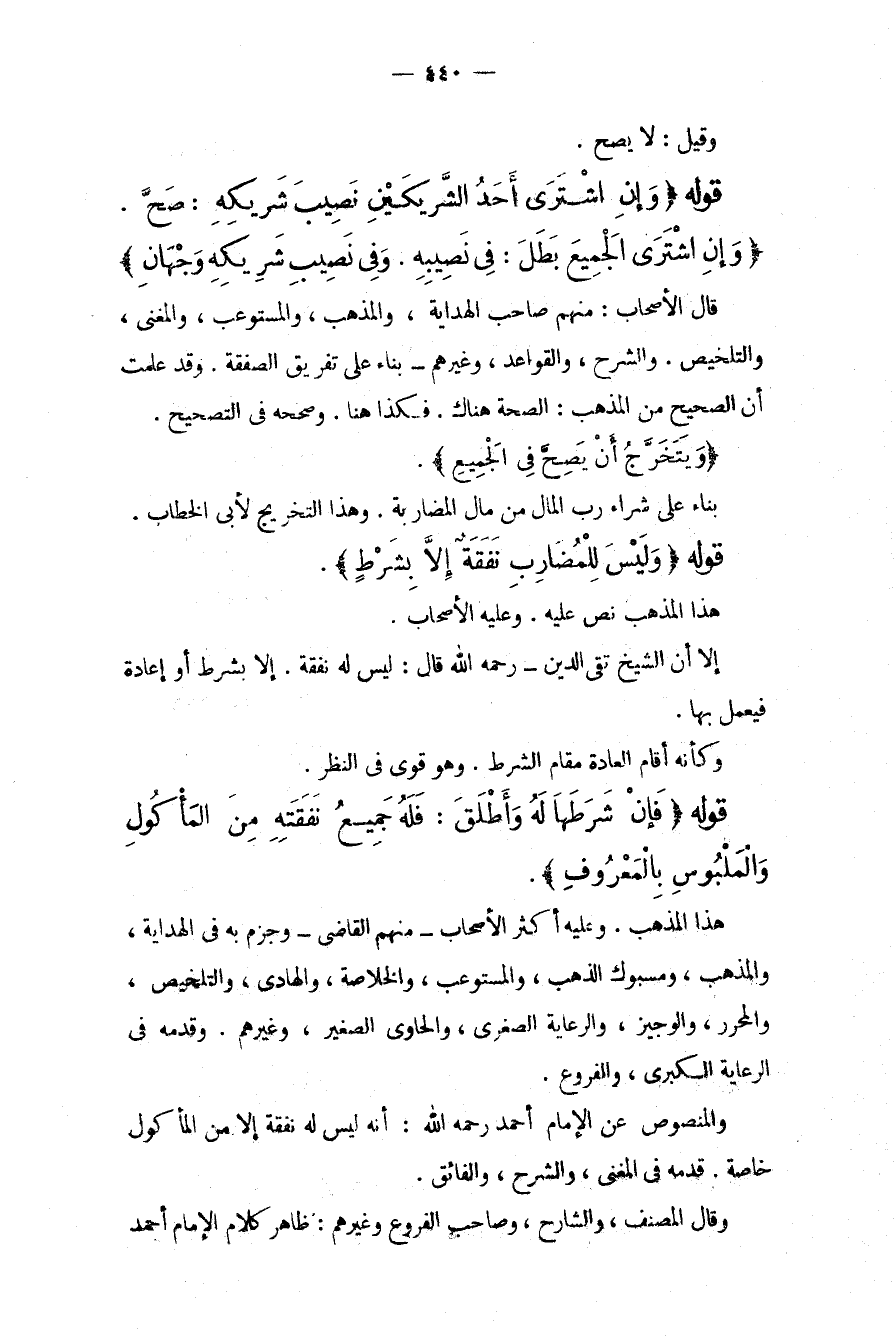 — ٤٤٠ —
وقيل : لا يصح .
قوله ﴿ وَإِنِ اشْتَرَى أَحَدُ الشَّرِيكَيْنِ نَصِيبَ شَرِيكِهِ : صَحَّ .
﴿ وَإِنِ اشْتَرَى الْجَمِيعَ بَطَلَ : فِى نَصِيبِهِ . وَفِى نَصِيبِ شَرِيكِهِ وَجْهَانِ ﴾
قال الأصحاب : منهم صاحب الهداية ، والمذهب ، والمستوعب ، والمغنى ،
والتلخيص . والشرح ، والقواعد ، وغيرهم ــ بناء على تفريق الصفقة . وقد علمت
أن الصحيح من المذهب : الصحة هناك . فكذا هنا . وصححه فى التصحيح .
﴿وَيَتَخَرَّجُ أَنْ يَصِحَّ فِى الْجَمِيعِ ﴾ .
بناء على شراء رب المال من مال المضاربة . وهذا التخريج لأبى الخطاب .
قوله ﴿ وَلَيْسَ لِلْمُضَارِبِ نَفَقَةٌ إِلاَّ بِشَرْطٍ ﴾ .
هذا المذهب نص عليه . وعليه الأصحاب .
إلا أن الشيخ تقى الدين ــ رحمه الله قال : ليس له نفقة . إلا بشرط أو إعادة
فيعمل بها .
وكأنه أقام العادة مقام الشرط . وهو قوى فى النظر .
قوله ﴿ فَإِنْ شَرَطَهَا لَهُ وَأَطْلَقَ : فَلَهُ جَمِيعُ نَفَقَتِهِ مِنَ المَأْكُولِ
وَالْمَلْبُوسِ بِالْمَعْرُوفِ ﴾ .
هذا المذهب . وعليه أكثر الأصحاب ــ منهم القاضى ــ وجزم به فى الهداية ،
والمذهب ، ومسبوك الذهب ، والمستوعب ، والخلاصة ، والهادى ، والتلخيص ،
والمحرر ، والوجيز ، والرعاية الصغرى ، والحاوى الصغير ، وغيرهم . وقدمه فى
الرعاية الكبرى ، والفروع .
والمنصوص عن الإمام أحمد رحمه الله : أنه ليس له نفقة إلا من المأكول
خاصة . قدمه فى المغنى ، والشرح ، والفائق .
وقال المصنف ، والشارح ، وصاحب الفروع وغيرهم : ظاهر كلام الإمام أحمد